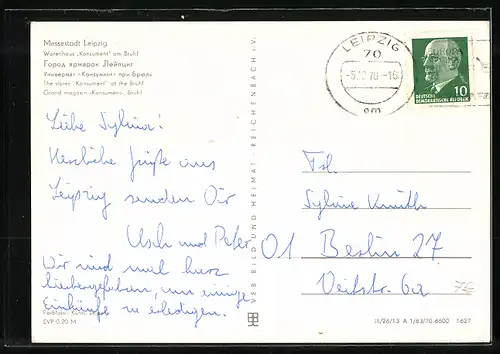 Messestadt Leipzig
Warenhaus „Konsument" am Brühl
Город ярмарок Лейпциг
Универмаг «Консумент» при Брюль
The stores "Konsument" at the Brühl
Grand magasin «Konsument», Brühl
LEIPZIG
70
-5.10.70-16
am
EUROPA
10
DEUTSCHE
DEMOKRATISCHE REPUBLIK
Liebe Sylvina!
Herzliche Grüße aus
Leipzig senden Dir
Usch und Peter
Wir sind mal kurz
hierhergefahren, um einige
Einkäufe zu erledigen.
Frl.
Knuth
01 Berlin 27
Veitstr. 6a
VEB BILD UND HEIMAT REICHENBACH i. V.
Farbfoto:
EVP 0,20 M
III/26/13 A 1/63/70-6600 1627